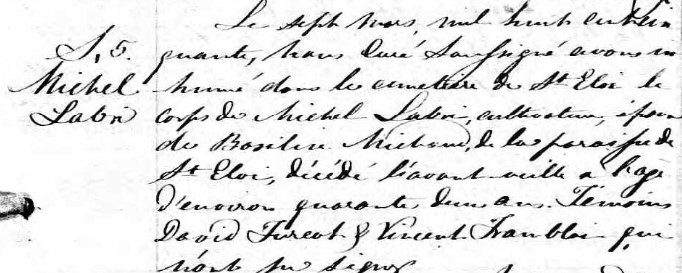 S, 5.
Michel
Labri
Le sept mars, mil huit cent cin
quante, nous Curé Soussigné avons in
humé dans le cimetière de St Eloi le
corps de Michel Labri, cultivateur, époux
de Basilise Michaud, de la paroisse de
St Eloi, décédé l'avant veille a l'age
d'environ quarante deux ans. Témoins
David Turcot & Vincent Tremblai qui
n'ont su signer